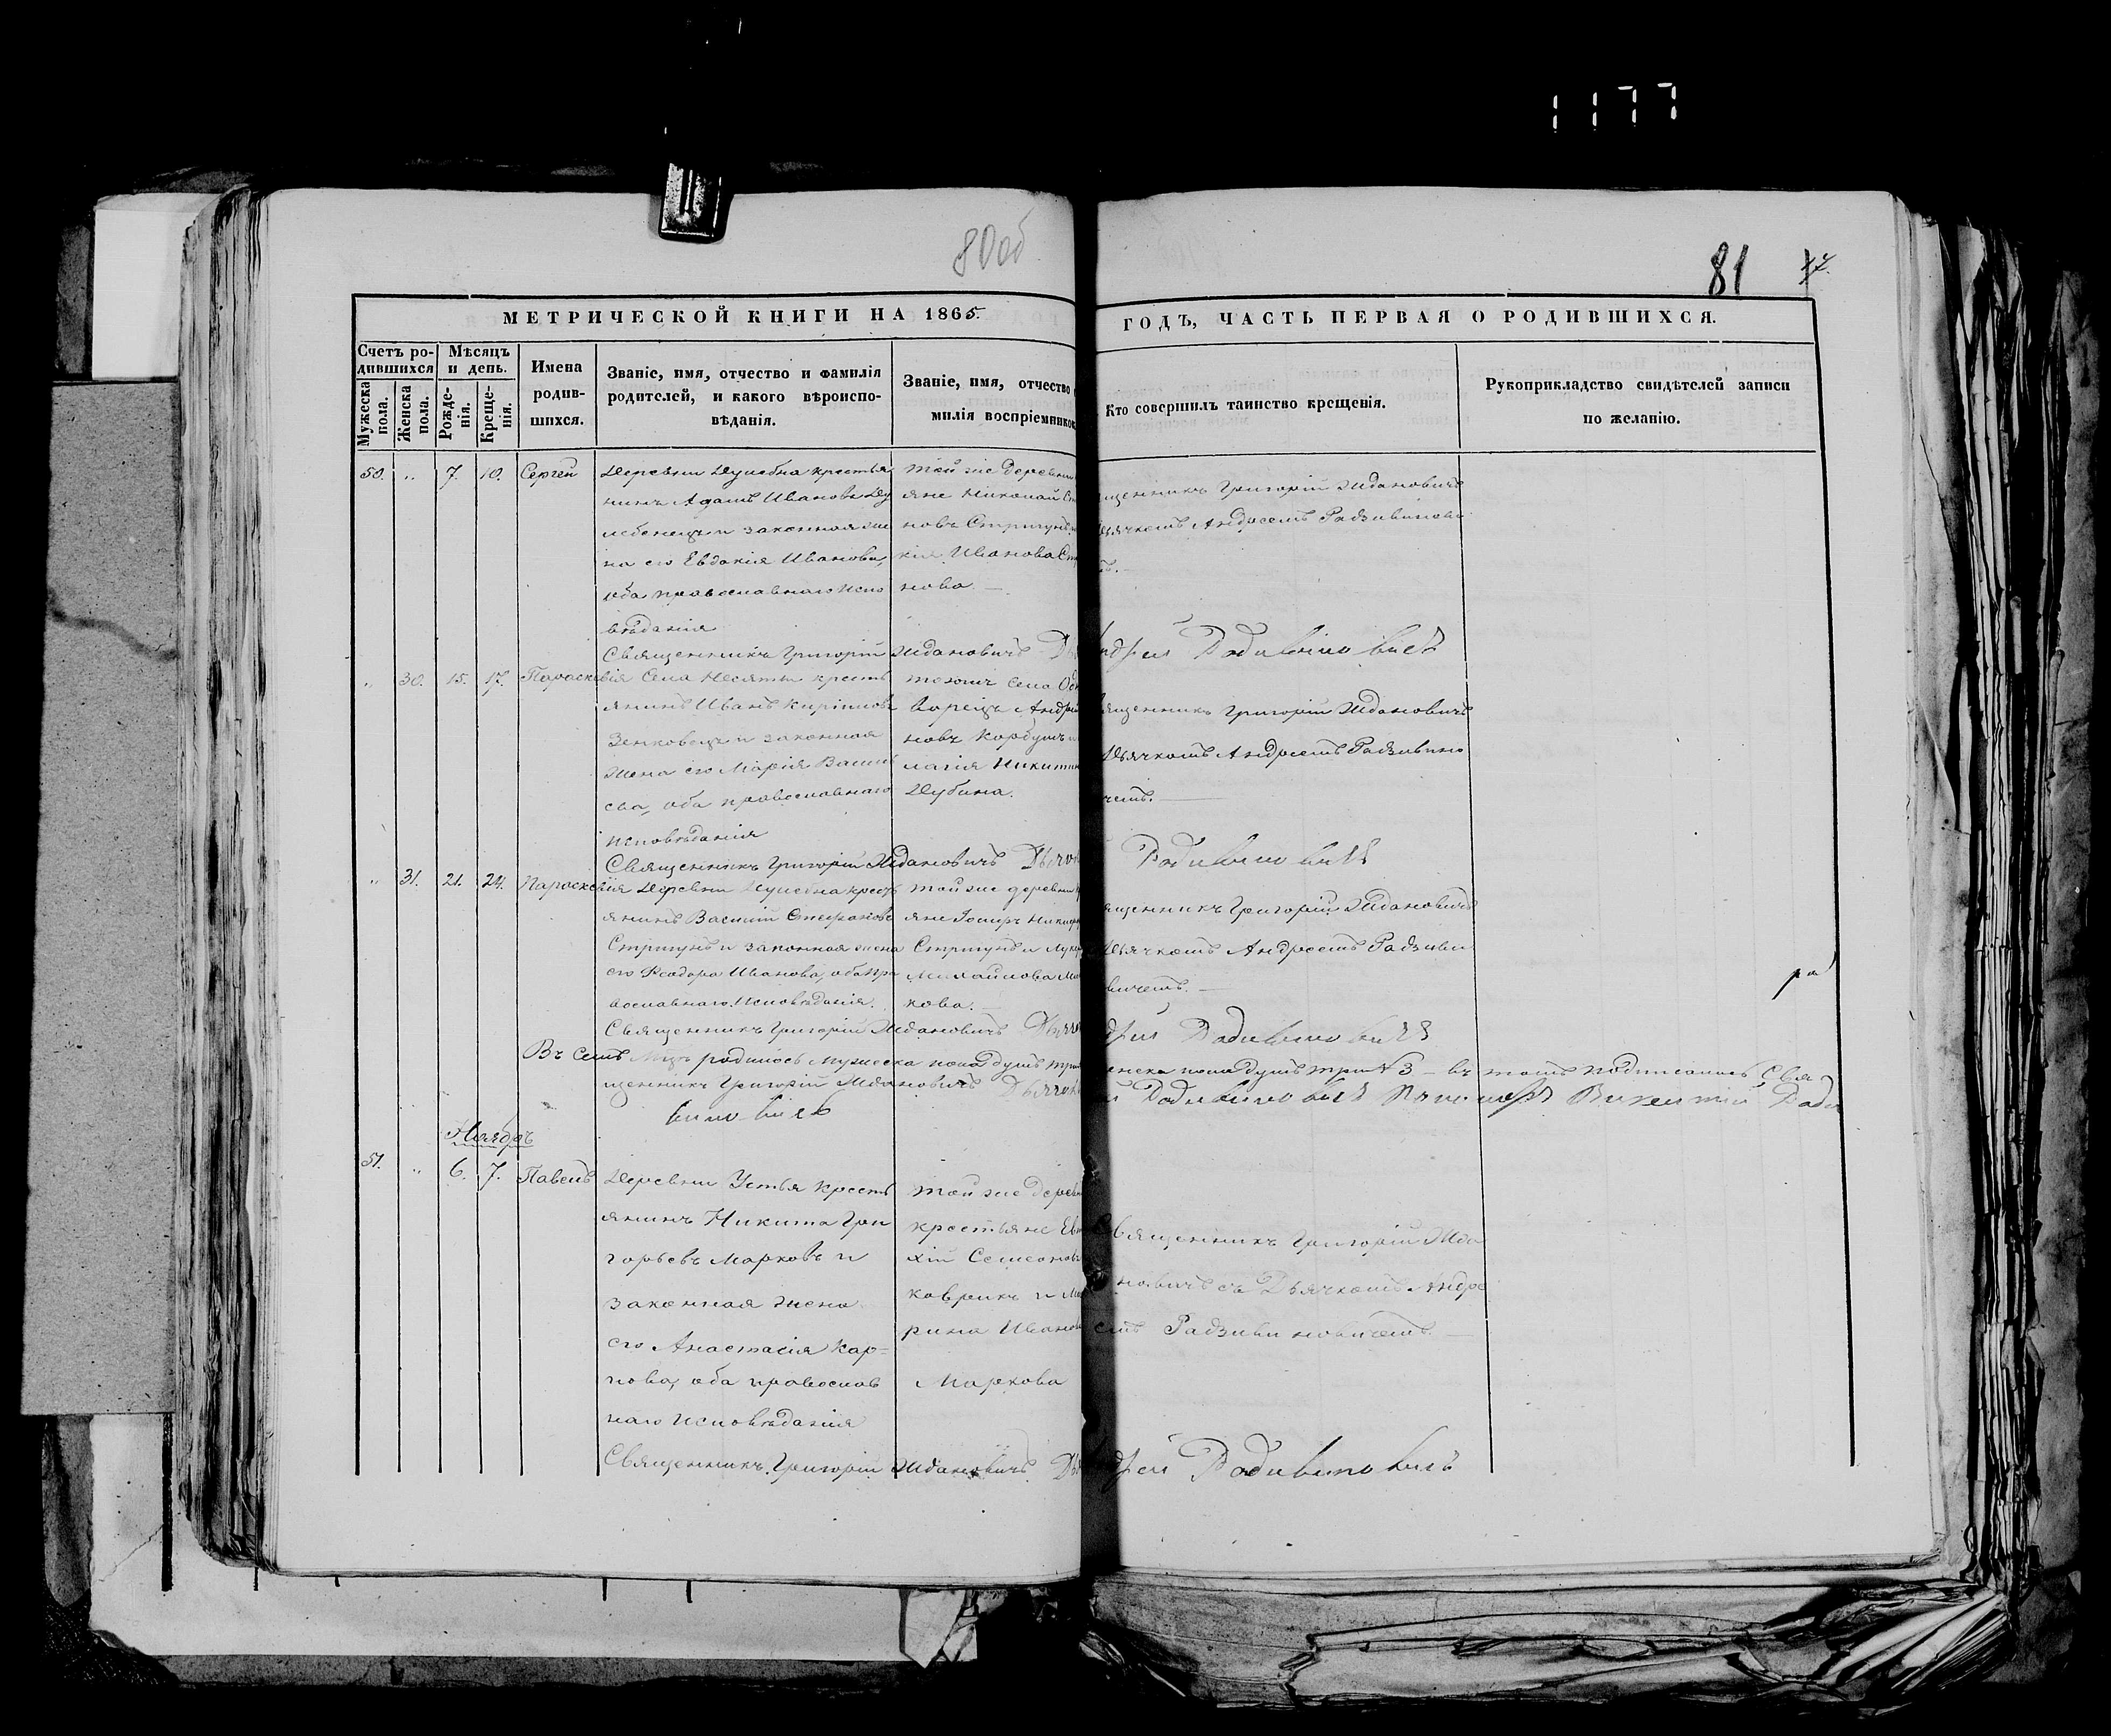 1177
80об
81
17.
МЕТРИЧЕСКОЙ КНИГИ НА 1865.
ГОДЪ, ЧАСТЬ ПЕРВАЯ О РОДИВШИХСЯ.
Счетъ ро-
дившихся
Мужеска
пола.
Женска
пола.
Мѣсяцъ
и день.
Рожде-
нія.
Креще-
нія.
Имена
родив-
шихся.
Званіе, имя, отчество и фамилія
родителей, и какого вѣроиспо-
вѣданія.
Званіе, имя, отчество
милія воспріемников
Кто совершилъ таинство крещенія.
Рукоприкладство свидѣтелей записи
по желанію.
50. „ 7. 10. Сергей
Деревни Дулебна крестья
нинъ Адамъ Ивановъ Ду
лебенецъ и законная же
на его Евдокія Иванова,
оба православнаго испо
вѣданія
той же деревни
яне Николай Ст
новъ Стригунъ и
кія Иванова Ст
нова. —
щенникъ Григорій Ждановичъ
Дьячкомъ Андреемъ Радзивинови
Священникъ Григорій Ждановичъ
„ 30. 15. 17. Параскевія
Села Несяты кресть
янинъ Иванъ Кирилловъ
Зенковецъ и законная
жена его Марія Василь
ева, оба православнаго
исповѣданія
тогожъ села Од
ворецъ Андрей
новъ Корбутъ и
лагія Никитин
Дубина.
вященникъ Григорій Ждановичъ
Дьячкомъ Андреемъ Радзивино
чемъ. —
Священникъ Григорій Ждановичъ Дьячок
„ 31. 21. 24. Параскевія
Деревни Дулебна крестъ
янинъ Василій Стефановъ
Стригунъ и законная жена
его Феодора Иванова, оба пра
вославнаго исповѣданія.
той же деревни
яне Іосифъ Никиф
Стригунъ и Луке
Михайлова Ма
кова. —
ященникъ Григорій Ждановичъ
Дьячкомъ Андреемъ Радзиви
вичемъ. —
Священникъ Григорій Ждановичъ Дьячо
Въ семъ родилось мужеска пола душъ три
женска пола душъ три № 3 — въ томъ подписались Свя
щенникъ Григорій Ждановичъ Дьячок
Ноябрь
51. „ 6. 7. Павелъ
Деревни Устья кресть
янинъ Никита Гри
горьевъ Марковъ и
законная жена
его Анастасія Кар=
пова, оба православ
наго исповѣданія
той же дерев
крестьяне Ев
хій Семеновъ
коврикъ и Ма
рина Иванов
Маркова
Священникъ Григорій Жда
новичъ съ Дьячкомъ Андре
емъ Радзивиновичемъ. —
Священникъ Григорій Ждановичъ